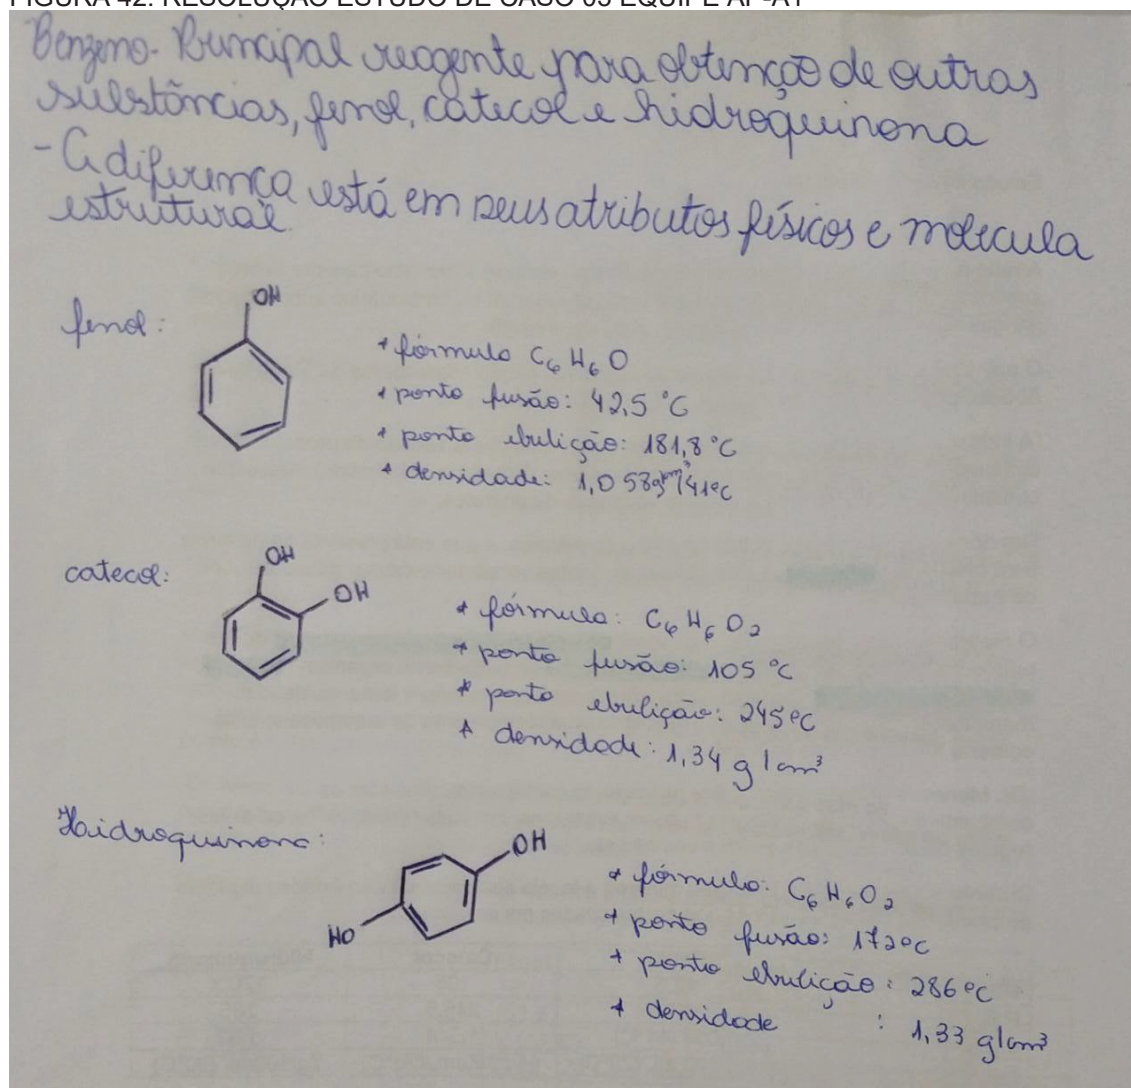 FIGURA 42: RESOLUÇÃO ESTUDO DE CASO 03 EQUIPE AP-A1
Benzeno- Principal reagente para obtenção de outras
substâncias, fenol, catecol e hidroquinona
- A diferença está em seus atributos físicos e molecula
estrutural.
fenol:
OH
* fórmula C6H6O
* ponto fusão: 42,5 °C
* ponto ebulição: 181,8 °C
* densidade: 1,058g/cm³/41°C
catecol:
OH
OH
* fórmula: C6H6O2
* ponto fusão: 105 °C
* ponto ebulição: 245°C
* densidade: 1,34 g/cm³
Hidroquinona:
OH
HO
* fórmula: C6H6O2
* ponto fusão: 172°C
* ponto ebulição: 286°C
* densidade : 1,33 g/cm³